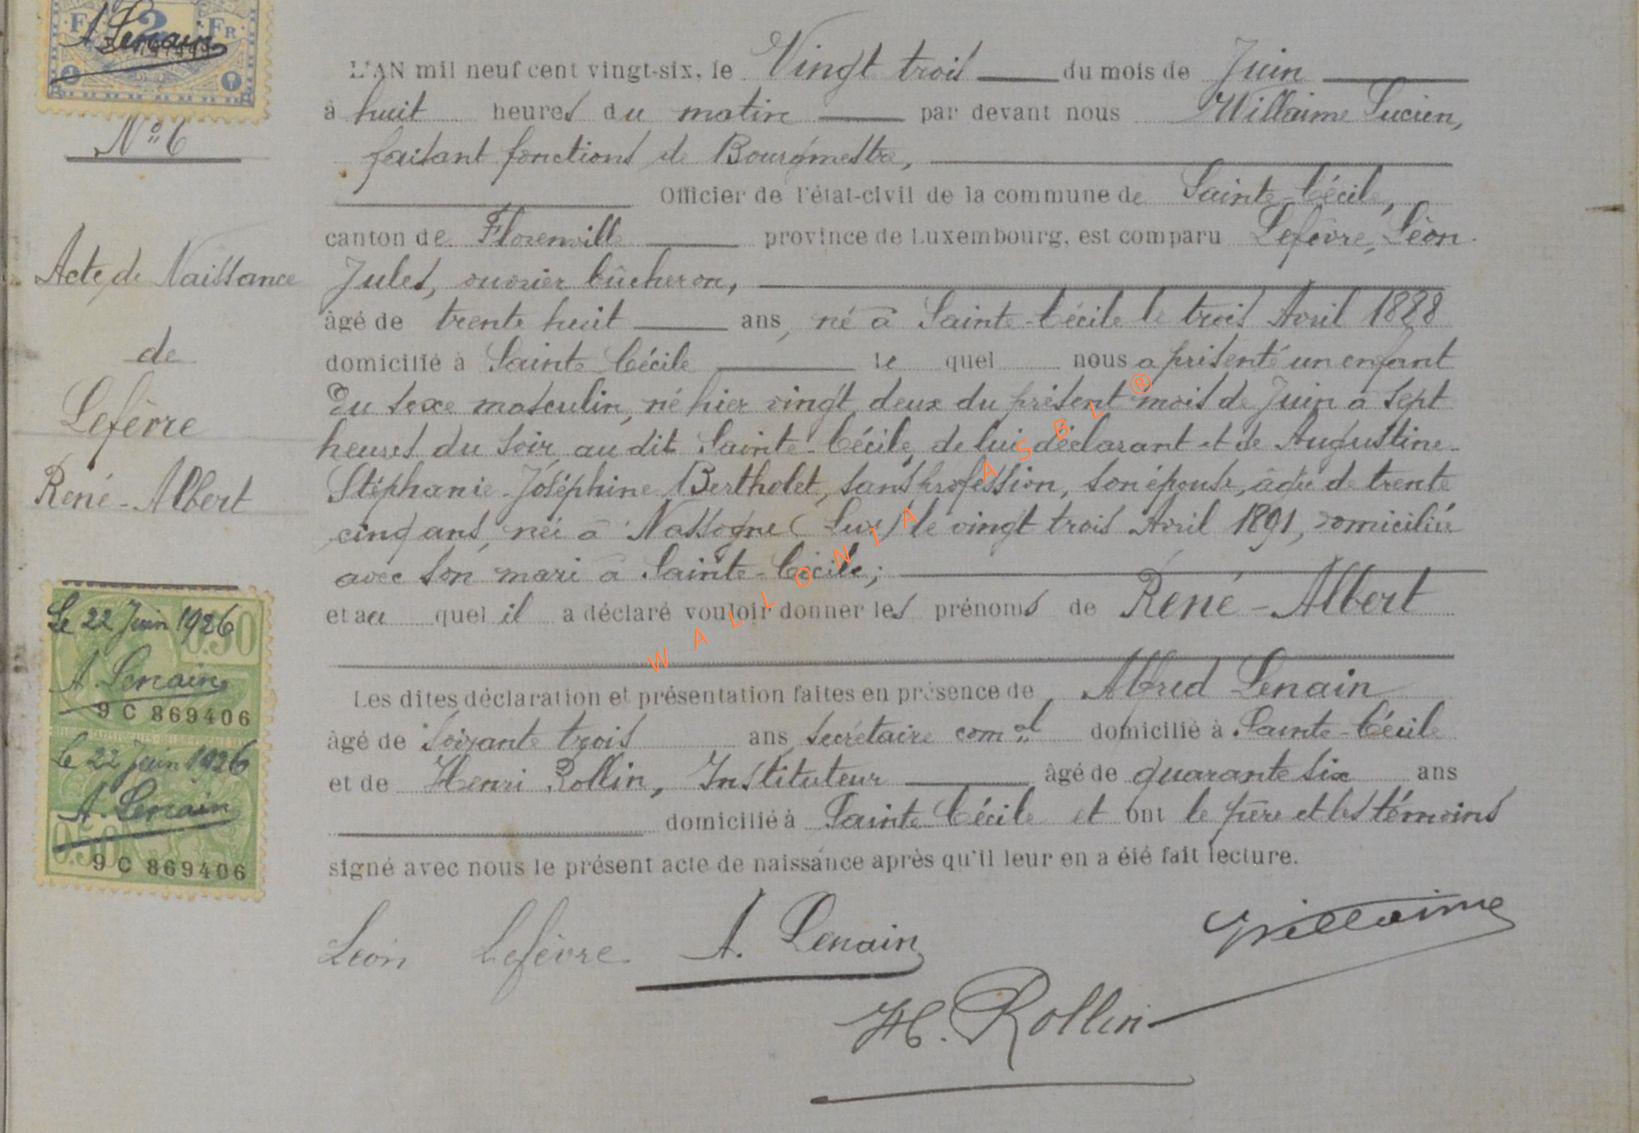 Fr 2 Fr
A. Lenain
N° 6
Acte de Naissance
de
Lefèvre
René-Albert
L'AN mil neuf cent vingt-six, le Vingt trois du mois de Juin
à huit heures du matin par devant nous Willaime Lucien,
faisant fonctions de Bourgmestre,
Officier de l'état-civil de la commune de Sainte-Cécile,
canton de Florenville province de Luxembourg, est comparu Lefèvre, Léon
Jules, ouvrier bûcheron,
âgé de trente huit ans, né à Sainte-Cécile le trois Avril 1888
domicilié à Sainte Cécile le quel nous a présenté un enfant
du sexe masculin, né hier vingt deux du présent mois de Juin à sept
heures du soir, au dit Sainte-Cécile, de lui déclarant et de Augustine-
Stéphanie-Joséphine Bertholet, sans profession, son épouse, âgée de trente
cinq ans, née à Nassogne (Lux) le vingt trois Avril 1891, domiciliée
avec son mari à Sainte-Cécile;
et au quel il a déclaré vouloir donner les prénoms de René-Albert
Les dites déclaration et présentation faites en présence de Alfred Lenain
âgé de Soixante trois ans secrétaire comal domicilié à Sainte-Cécile
et de Henri Rollin, Instituteur âgé de quarante six ans
domicilié à Sainte-Cécile et ont le père et les témoins
signé avec nous le présent acte de naissance après qu'il leur en a été fait lecture.
Léon Lefèvre A. Lenain Willaime
H. Rollin
Le 22 Juin 1926
0.50
A. Lenain
9 C 869406
Le 22 Juin 1926
A. Lenain
0.50
9 C 869406
WALLONIA ASBL ®